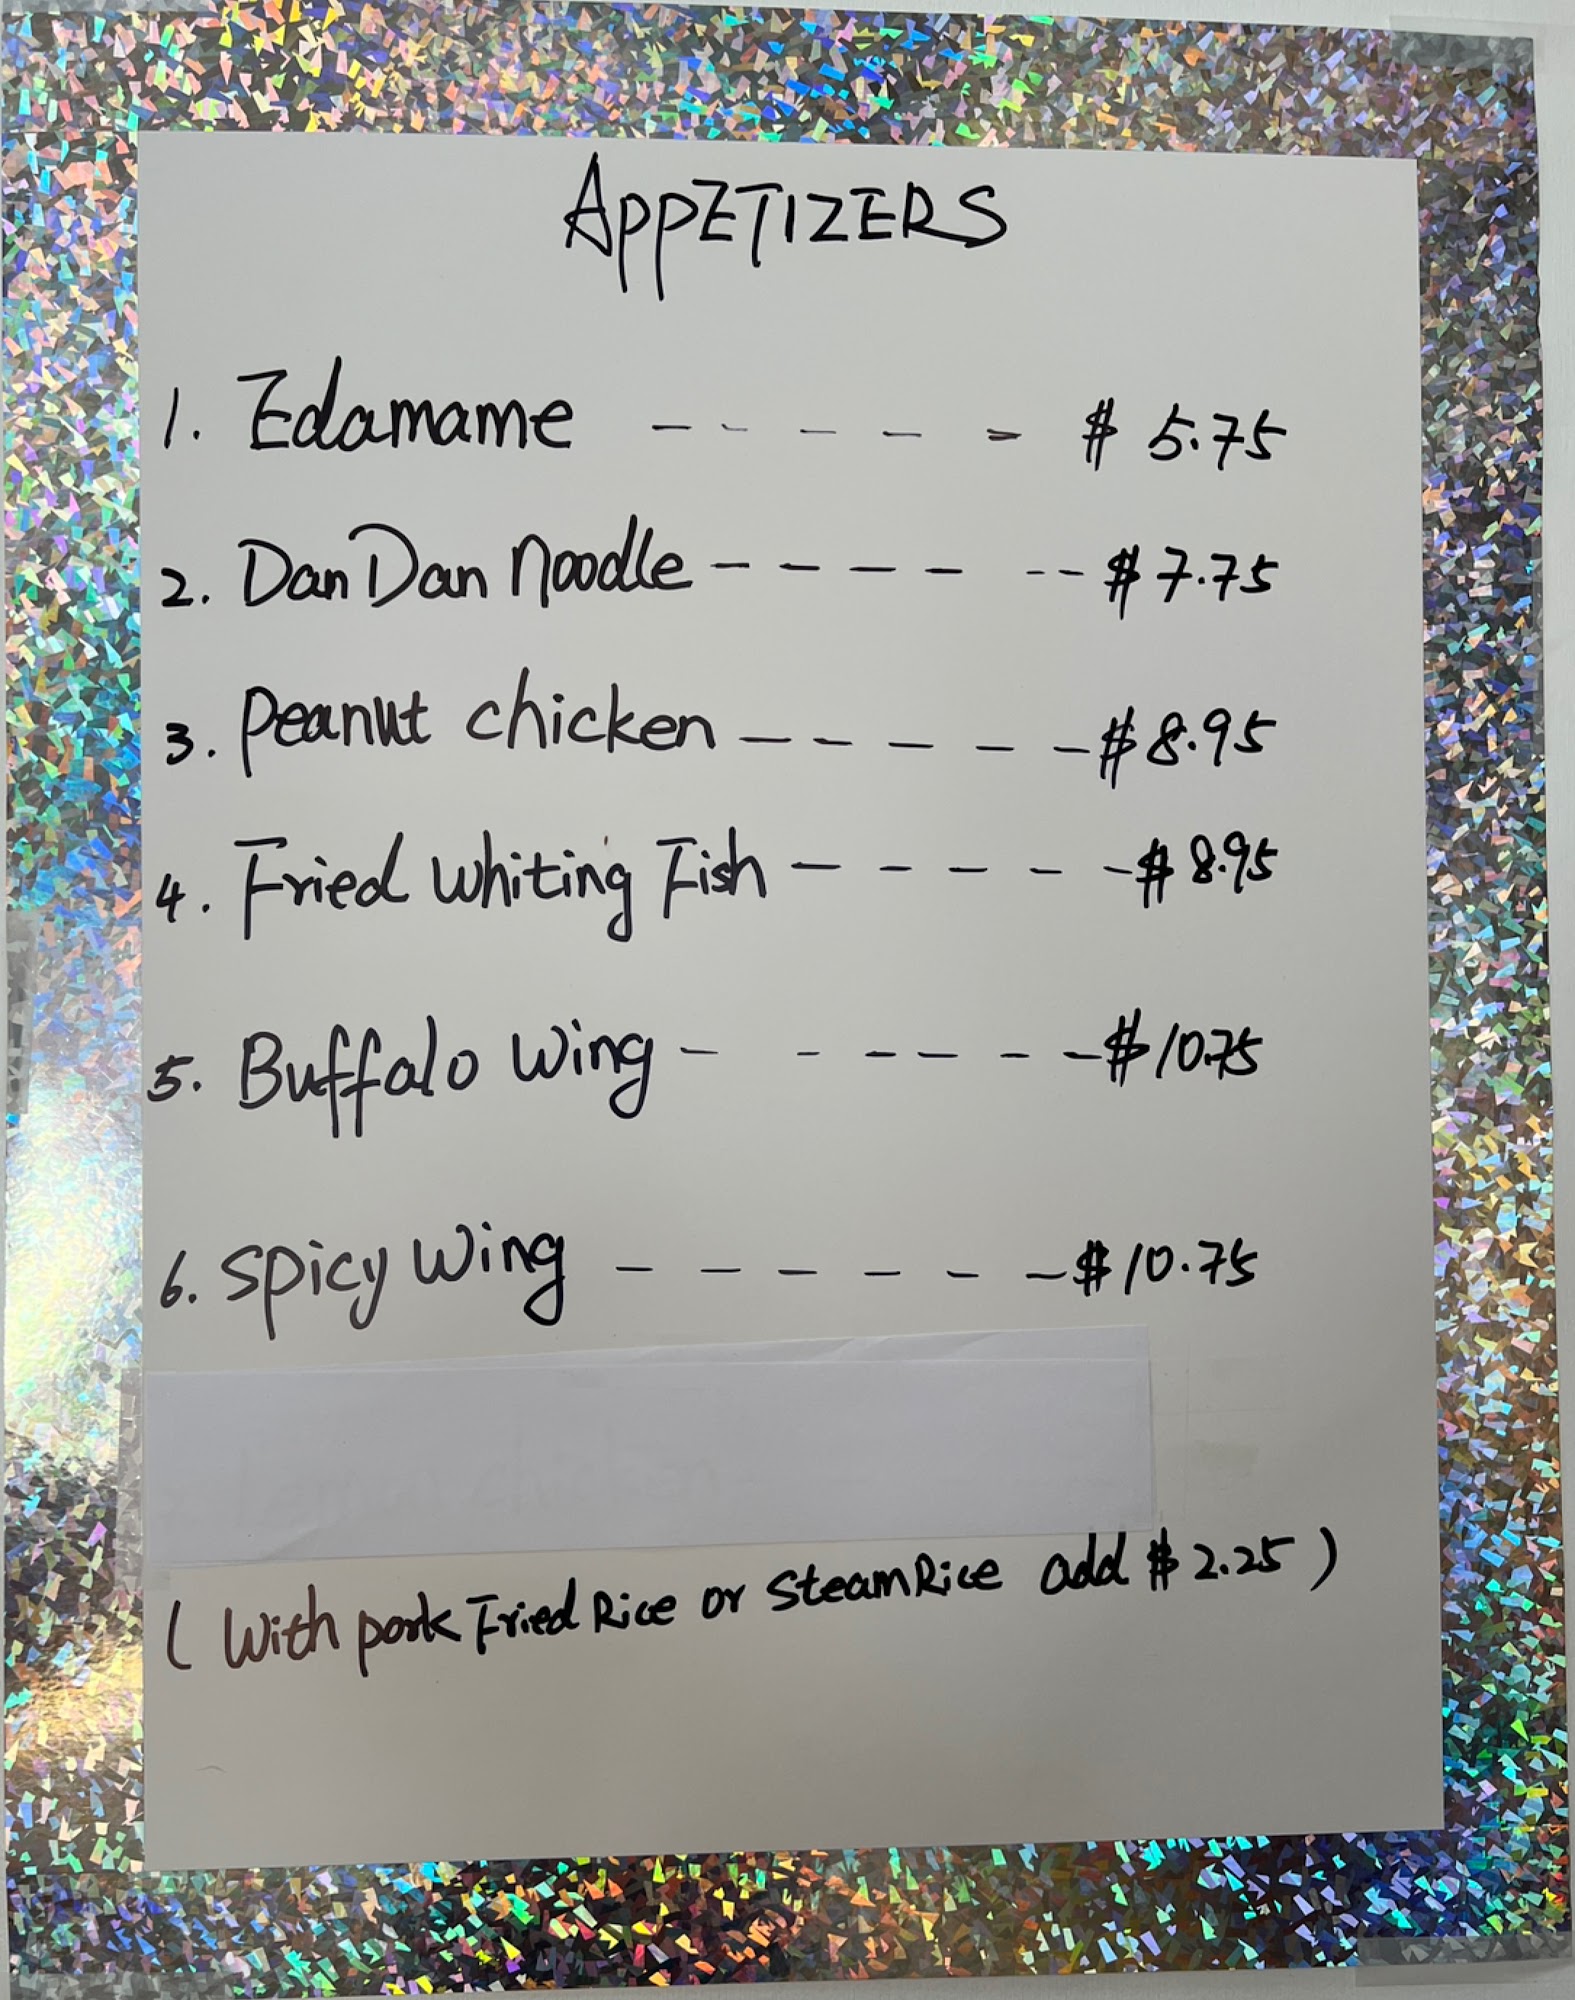 APPETIZERS
1. Edamame - - - - - $ 5.75
2. Dan Dan Noodle - - - - - - $ 7.75
3. Peanut chicken - - - - - $ 8.95
4. Fried whiting Fish - - - - - $ 8.95
5. Buffalo wing - - - - - - $ 10.75
6. Spicy Wing - - - - - - $ 10.75
( With pork Fried Rice or Steam Rice add $ 2.25 )